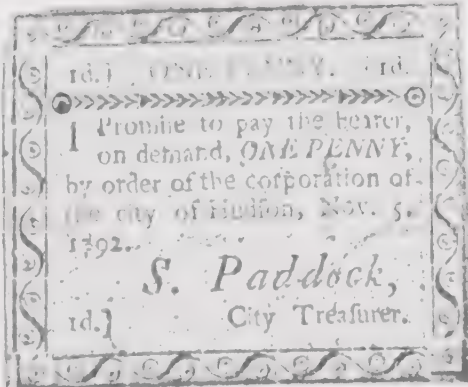 1d.] ONE PENNY. [1d.
I Promise to pay the bearer,
on demand, ONE PENNY,
by order of the corporation of
the city of Hudſon, Nov. 5.
1792.
S. Paddock,
1d.] City Treaſurer.